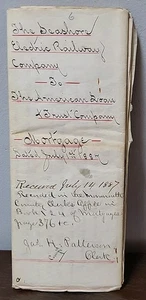 6
The Seashore
Electric Railway
Company
To
The American Loan
& Trust Company
Mortgage
Dated July 1st 1887
Received July 14 1887
Recorded in the Monmouth
County Clerks Office in
Book 124 of Mortgages
page 376 &c.
H. Patterson
Clerk